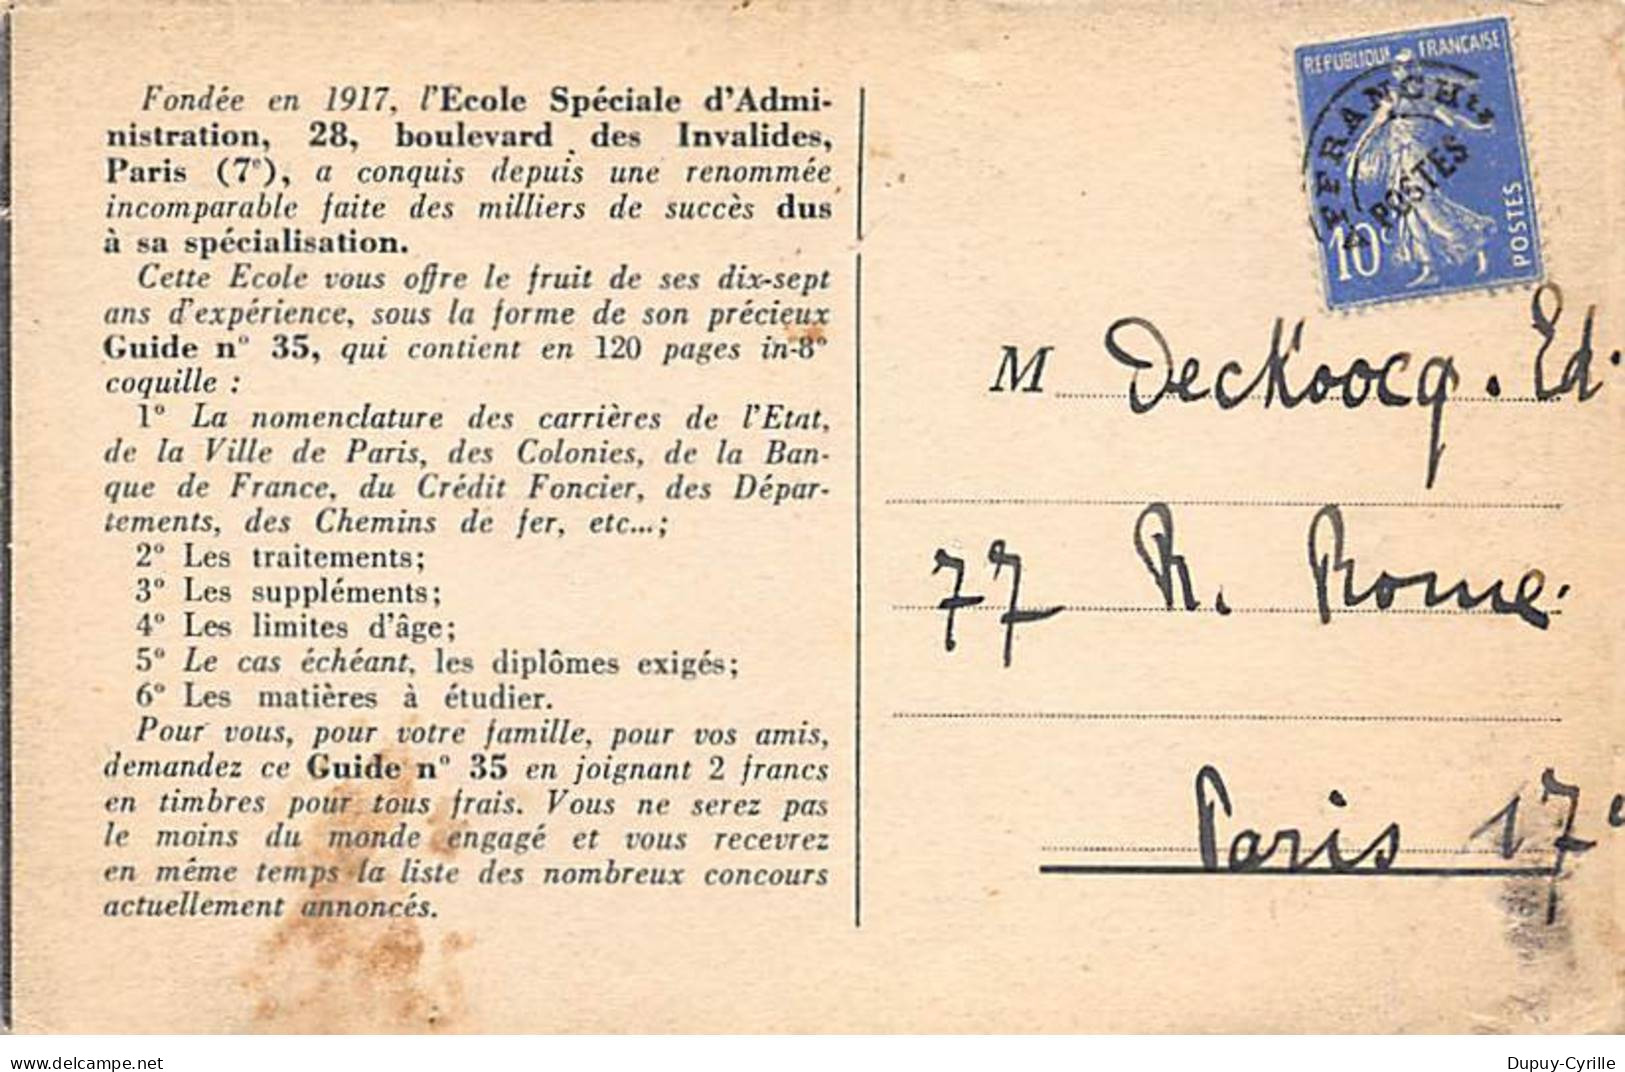 Fondée en 1917, l'Ecole Spéciale d'Admi-
nistration, 28, boulevard des Invalides,
Paris (7e), a conquis depuis une renommée
incomparable faite des milliers de succès dus
à sa spécialisation.
Cette Ecole vous offre le fruit de ses dix-sept
ans d'expérience, sous la forme de son précieux
Guide n° 35, qui contient en 120 pages in-8°
coquille :
1° La nomenclature des carrières de l'Etat,
de la Ville de Paris, des Colonies, de la Ban-
que de France, du Crédit Foncier, des Dépar-
tements, des Chemins de fer, etc...;
2° Les traitements;
3° Les suppléments;
4° Les limites d'âge;
5° Le cas échéant, les diplômes exigés;
6° Les matières à étudier.
Pour vous, pour votre famille, pour vos amis,
demandez ce Guide n° 35 en joignant 2 francs
en timbres pour tous frais. Vous ne serez pas
le moins du monde engagé et vous recevrez
en même temps la liste des nombreux concours
actuellement annoncés.
REPUBLIQUE FRANCAISE
AFFRANCHts
POSTES
10c
POSTES
M Deckoocq. Ed.
77 R. Rome.
Paris 17e
www.delcampe.net
Dupuy-Cyrille